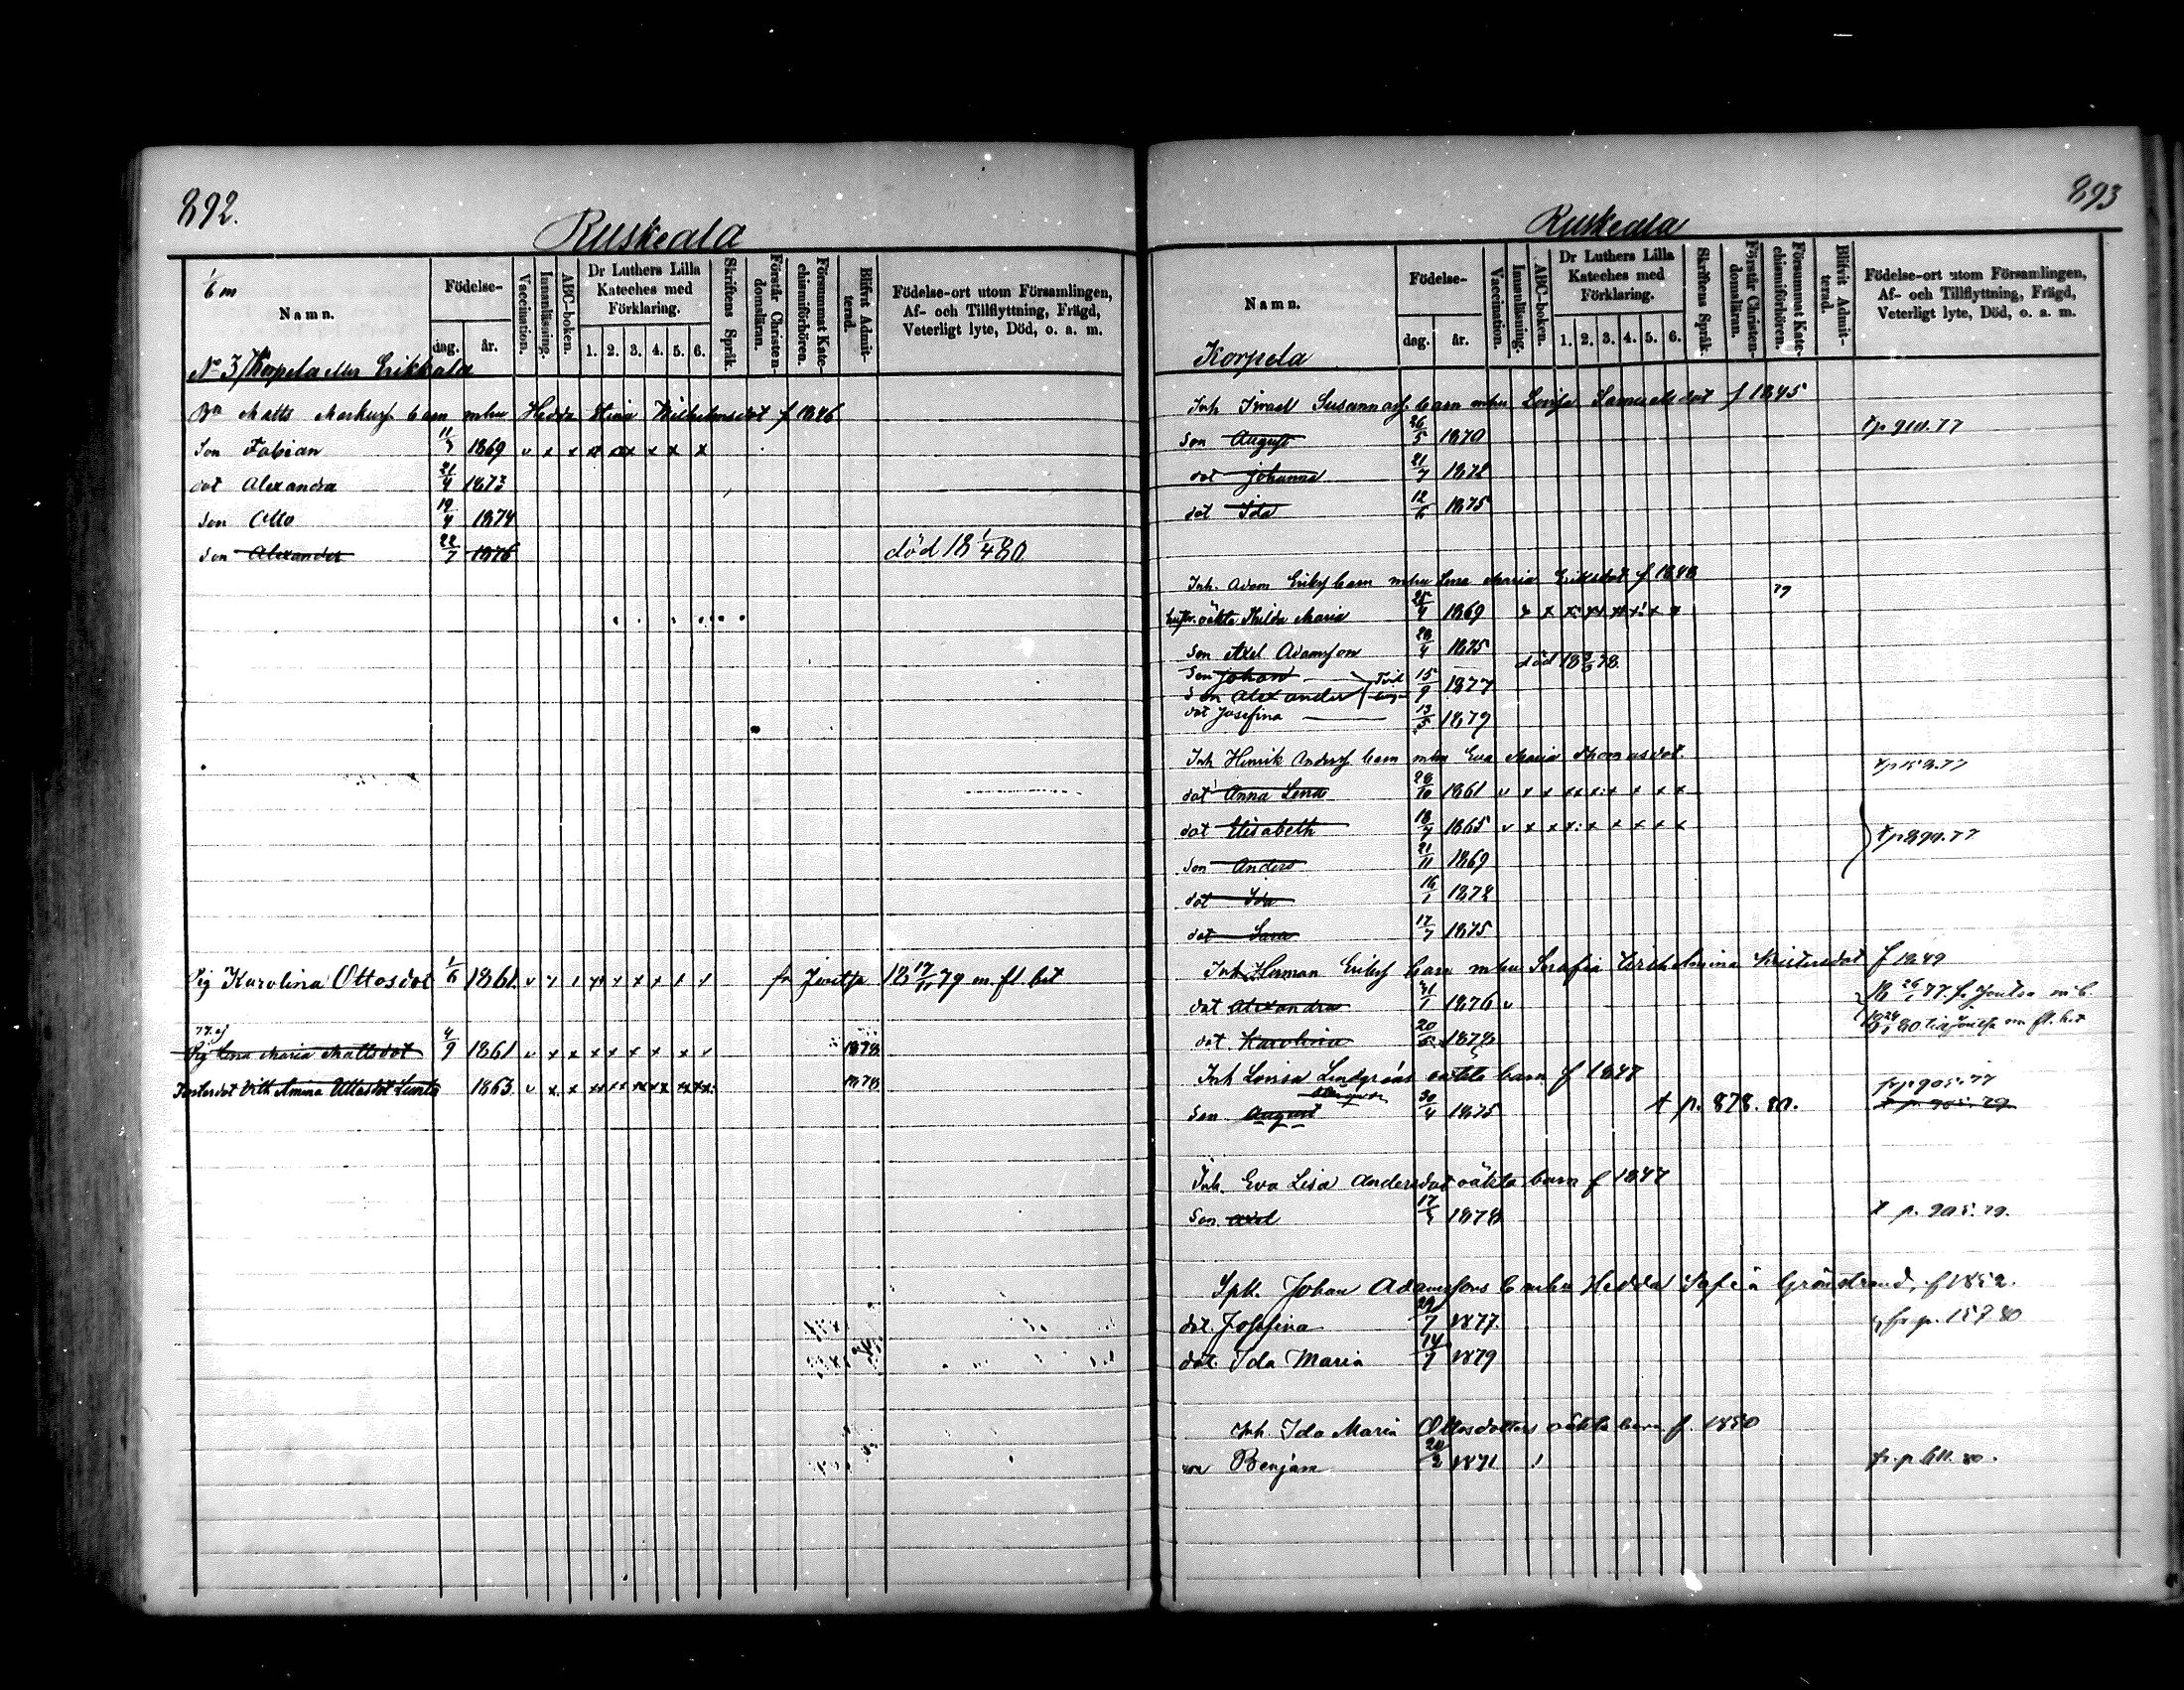 892.
Ruskeala
1/6 m
Namn.
Födelse-
dag.
år.
Vaccination.
Innanläsning.
ABC-boken.
Dr Luthers Lilla Kateches med Förklaring.
1. 2. 3. 4. 5. 6.
Skriftens Språk.
Förstår Christendomsläran.
Försummat Katechismiförhören.
Blifvit Admitterad.
Födelse-ort utom Församlingen, Af- och Tillflyttning, Frägd, Veterligt lyte, Död, o. a. m.
No 3/ Korpela eller Erikkala
Bn Matts Markusf barn mhu Hedda Stina Wilhelmsdot f 1846
Son Fabian 1869 v x x x x x x
dot Alexandra 21/4 1873
Son Otto 19/4 1874
Son Alexander 22/7 1876 död 18 1/4 80
Pig Karolina Ottosdot 1/6 1861 v fr Joutsa 18 17/ 79 m. fl. bet
77. ej
Pig Lena Maria Mattsdot 4/9 1861 v x x x x x x x 1878
dot Vilh Amina Ottosdot 1863 v x x xx xx xx xx xx 1878
893
Ruskeala
Namn.
Födelse-
dag.
år.
Vaccination.
Innanläsning.
ABC-boken.
Dr Luthers Lilla Kateches med Förklaring.
1. 2. 3. 4. 5. 6.
Skriftens Språk.
Förstår Christendomsläran.
Försummat Katechismiförhören.
Blifvit Admitterad.
Födelse-ort utom Församlingen, Af- och Tillflyttning, Frägd, Veterligt lyte, Död, o. a. m.
Korpela
Inh Israel Susannasf. barn mhu Lovisa Samuelsdot f 1845
Son August 26/5 1870 t p 910. 77
dot Johanna 21/7 1872
dot Ida 12/6 1875
Inh. Adam Eriksf barn mhu Lena Maria Eriksdot f 1848
79
oäkta Hilda Maria 1869
Son Axel Adamsson 28/4 1875
död 78.
Son Johan 15/9 1877
Son Alexander
dot Josefina 13/5 1879
Inh Henrik Andersf. barn mhu Eva Maria Thomasdot. 77
dot Anna Lena 28/10 1861 v x x xx x x x x x
dot Elisabeth 18/7 1865 v x x x x x x x x t p 899. 77
Son Anders 21/11 1869
dot Ida 16/1 1872
dot Sara 17/7 1875
Inh Herman Eriksf barn mhu Serafia f 1849
dot Alexandra 31/1 1876 v 77. fr Joutsa m. b.
dot Karolina 20/ 1878 80 till Joutsa m fl. bet
Inh Lovisa Lindgréns oäkta barn f 1847 fr p 905. 77
Son August 30/4 1875 t p. 878. 80. t p. 905. 79
Inh. Eva Lisa Andersdot oäkta barn f 1847
Son Axel 17/ 1878 t p. 905. 79.
Sptk. Johan Adamssons b mhu Hedda Sofia Grönstrand, f 1852.
dot. Josefina 29/7 1877 fr p. 157 80
dot. Ida Maria 14/7 1879
Inh. Ida Maria Ottosdotters oäkta barn f. 1850
son Benjam 24/2 1871 fr. p. 611. 80.